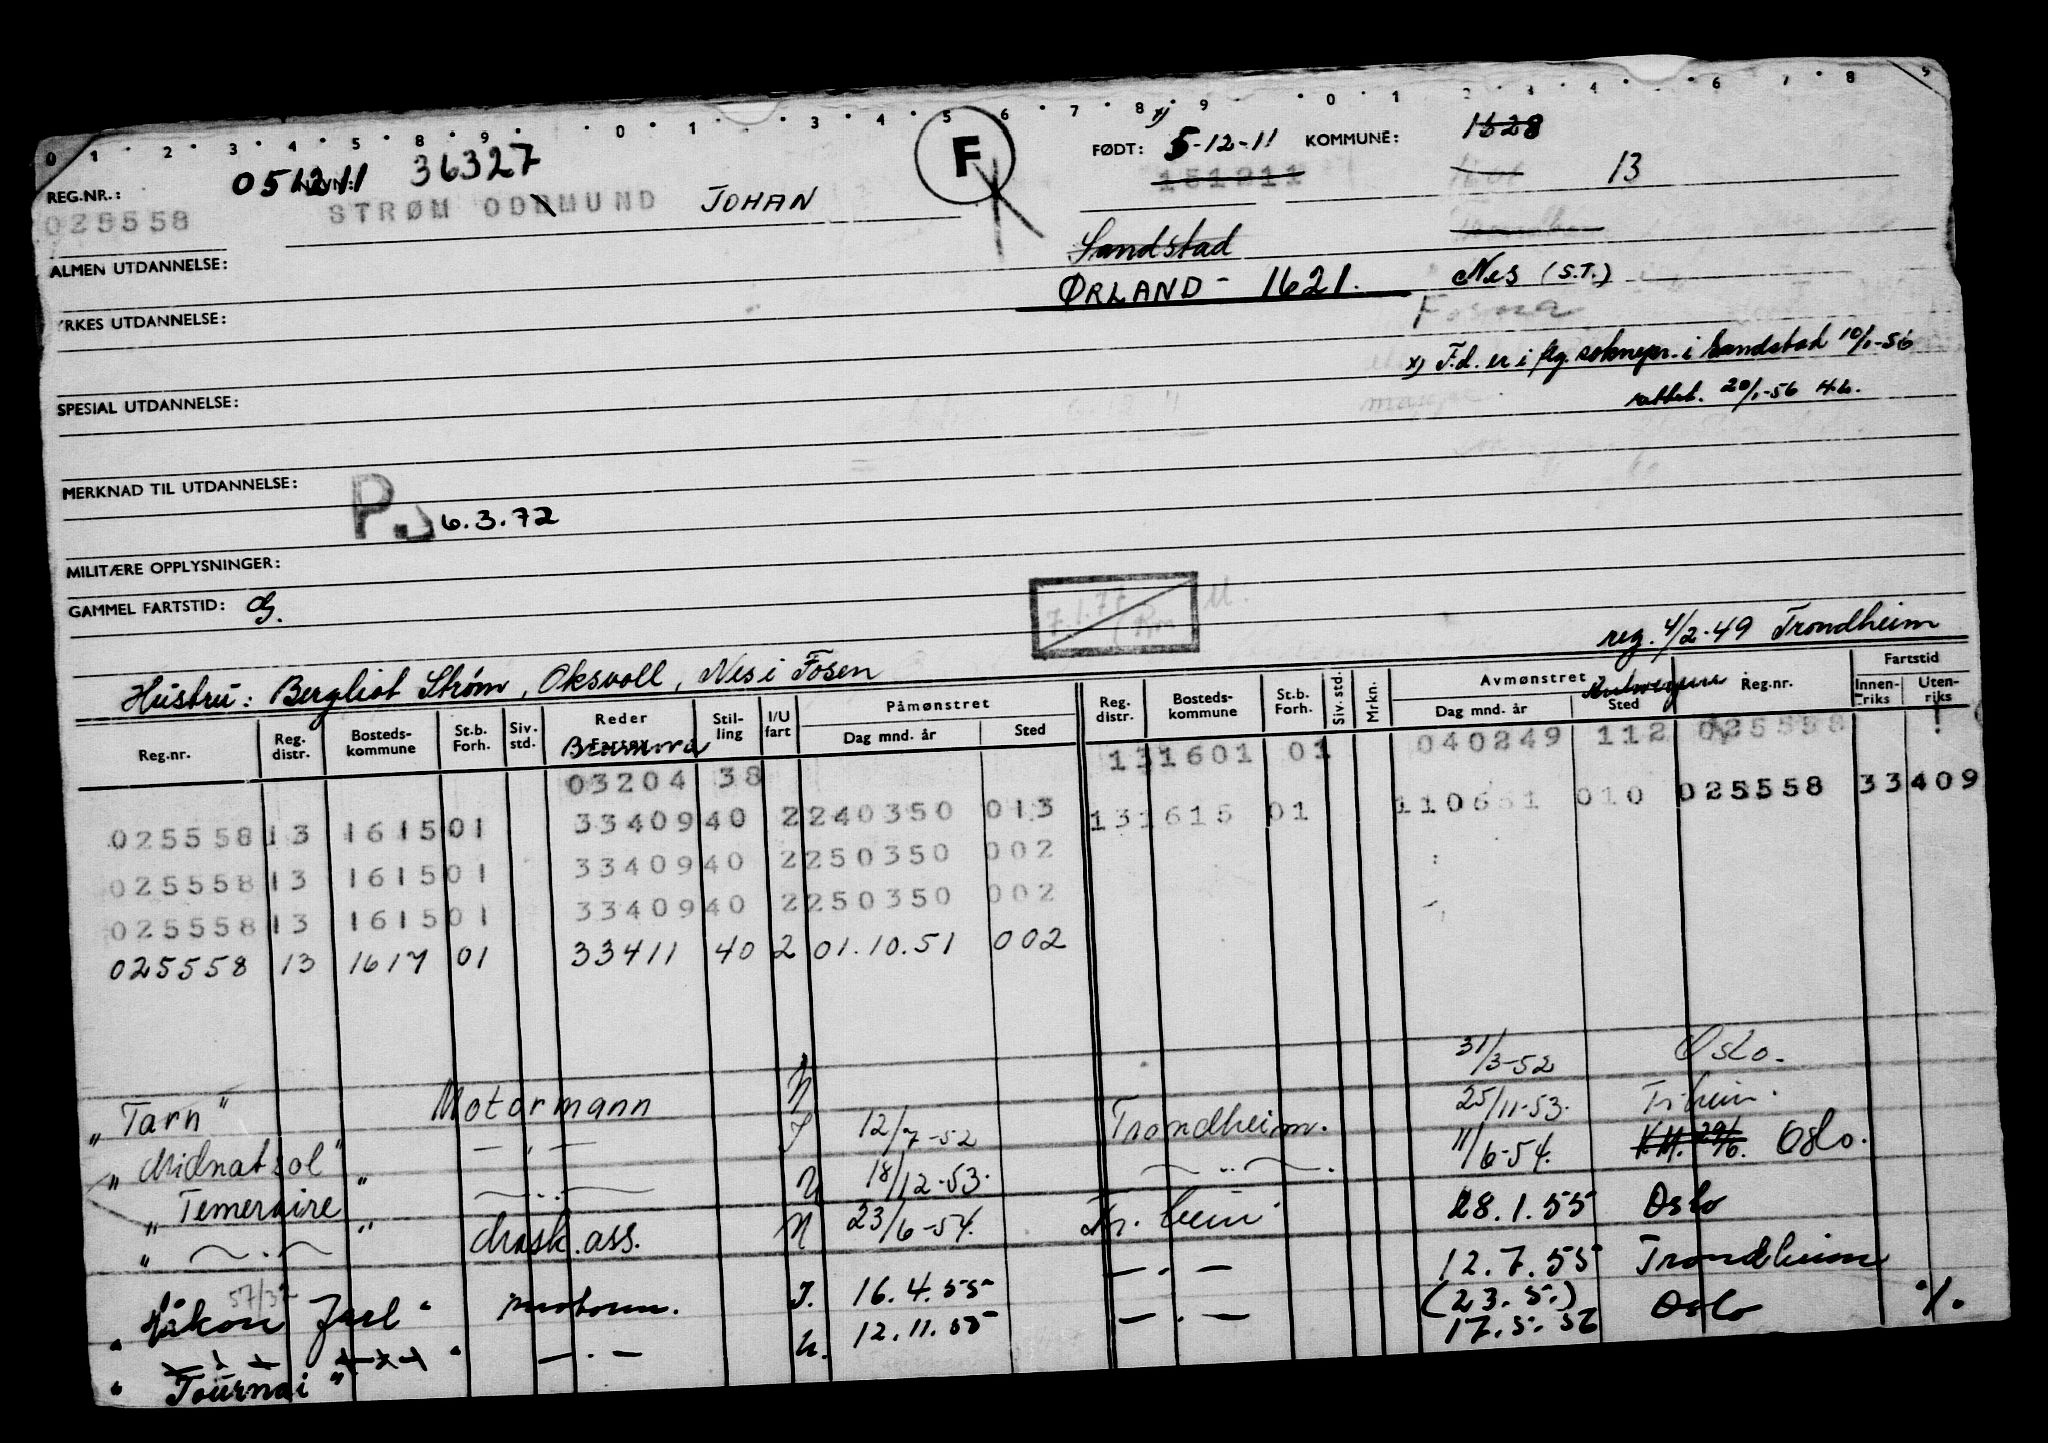 0 1 2 3 4 5 8 9 0 1 3 4 5 6 7 8 9 0 1 2 3 4 6 7 8 9
REG.NR.: 051211 36327 F FØDT: x) 5-12-11 KOMMUNE: 1628
025558 STRØM ODDMUND JOHAN 151211 13
Sandstad
ALMEN UTDANNELSE: ØRLAND - 1621. Nes (S.T.)
YRKES UTDANNELSE: Fosna
x) F.d. er i flg. soknepr. i Sandstad 10/1-56
SPESIAL UTDANNELSE: rettet. 20/1-56
MERKNAD TIL UTDANNELSE: P. 6.3.72
MILITÆRE OPPLYSNINGER:
GAMMEL FARTSTID: G. 7.1.77
reg. 4/2-49 Trondheim
Hustru: Bergliot Strøm, Oksvoll, Nes i Fosen
Reg.nr. Reg. distr. Bosteds-kommune St.b. Forh. Siv. std. Reder Stil-ling I/U fart Påmønstret Dag mnd. år Sted Reg. distr. Bosteds-kommune St.b. Forh. Siv. std. Mrkn. Avmønstret Dag mnd. år Sted Reg.nr. Fartstid Innen-riks Uten-riks
Antwerpen
03204 38 131601 01 040249 112 025558
025558 13 1615 01 33409 40 2 240350 013 131615 01 110651 010 025558 33409
025558 13 1615 01 33409 40 2 250350 002
025558 13 1615 01 33409 40 2 250350 002
025558 13 1617 01 33411 40 2 01.10.51 002
31/3-52 Oslo.
"Tarn" Motormann U
25/11-53. Tr.heim.
"Midnatsol" — " — I 12/7-52 Trondheim.
11/6-54. Oslo.
"Temeraire" — " — U 18/12-53. — " —
" — " — " Mask. ass. U 23/6-54. Tr. heim. 28.1.55 Oslo
57/32
"Håkon Jarl" motorm. I. 16.4.55 — " — 12.7.55 Trondheim
(23.5.)
"Tournai" — " — U. 12.11.55 — " — 17.5.56 Oslo %.